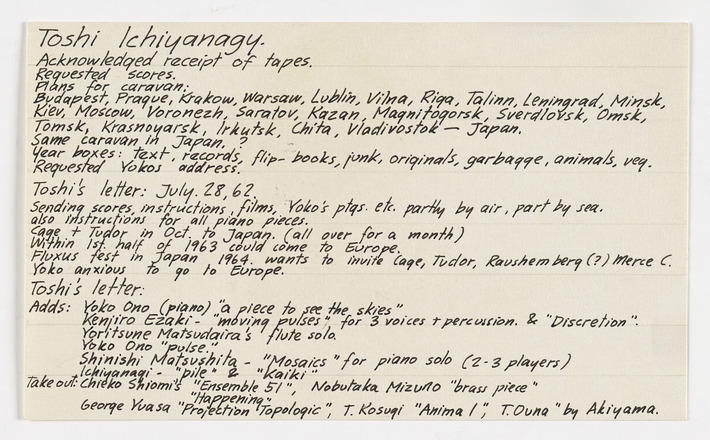 Toshi Ichiyanagy.
Acknowledged receipt of tapes.
Requested scores.
Plans for caravan:
Budapest, Prague, Krakow, Warsaw, Lublin, Vilna, Riga, Talinn, Leningrad, Minsk,
Kiev, Moscow, Voronezh, Saratov, Kazan, Magnitogorsk, Sverdlovsk, Omsk,
Tomsk, Krasnoyarsk, Irkutsk, Chita, Vladivostok — Japan.
Same caravan in Japan. ?
Year boxes: text, records, flip-books, junk, originals, garbagge, animals, veg.
Requested Yokos address.
Toshi's letter: July. 28, 62.
Sending scores, instructions, films, Yoko's ptgs. etc. partly by air, part by sea.
also instructions for all piano pieces.
Cage + Tudor in Oct. to Japan. (all over for a month)
Within 1st. half of 1963 could come to Europe.
Fluxus fest in Japan 1964. wants to invite Cage, Tudor, Raushemberg (?) Merce C.
Yoko anxious to go to Europe.
Toshi's letter:
Adds: Yoko Ono (piano) "a piece to see the skies"
Kenjiro Ezaki - "moving pulses" for 3 voices + percussion. & "Discretion".
Yoritsune Matsudaira's flute solo.
Yoko Ono "pulse."
Shinishi Matsushita - "Mosaics" for piano solo (2-3 players)
Ichiyanagi - "pile" & "Kaiki"
Take out: Chieko Shiomi's "Ensemble 51", Nobutaka Mizuno "brass piece"
"Happening"
George Yuasa "Projection Topologic", T. Kosugi "Anima 1", T. Ouna" by Akiyama.